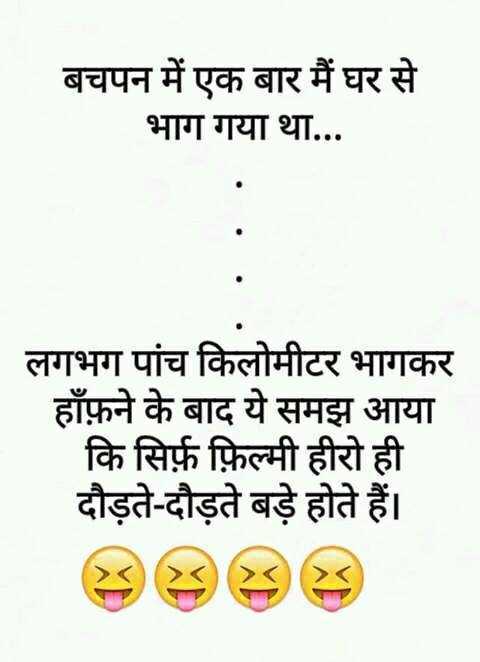 बचपन में एक बार मैं घर से
भाग गया था...
.
.
.
.
लगभग पांच किलोमीटर भागकर
हाँफ़ने के बाद ये समझ आया
कि सिर्फ़ फ़िल्मी हीरो ही
दौड़ते-दौड़ते बड़े होते हैं।
😝😝😝😝